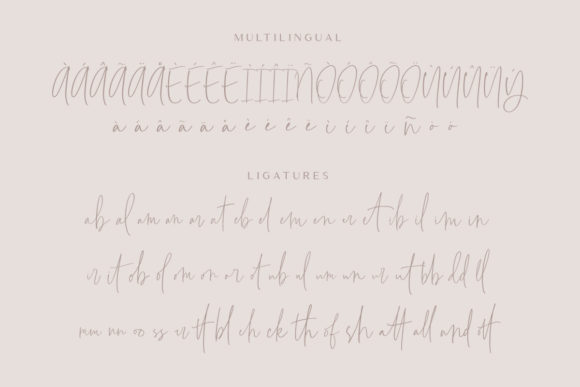 MULTILINGUAL
ÀÁÂÃÄÅÈÉÊËÌÍÎÏÑÒÓÔÕÖÙÚÛÜÝ
à á â ã ä å è é ê ë ì í î ï ñ ò ó
LIGATURES
ab al am an ar at eb el em en er et ib il im in
ir it ob ol om on or ot ub ul um un ur ut bb dd ll
mm nn oo ss rr tt bl ch ck th of sh att all and ott